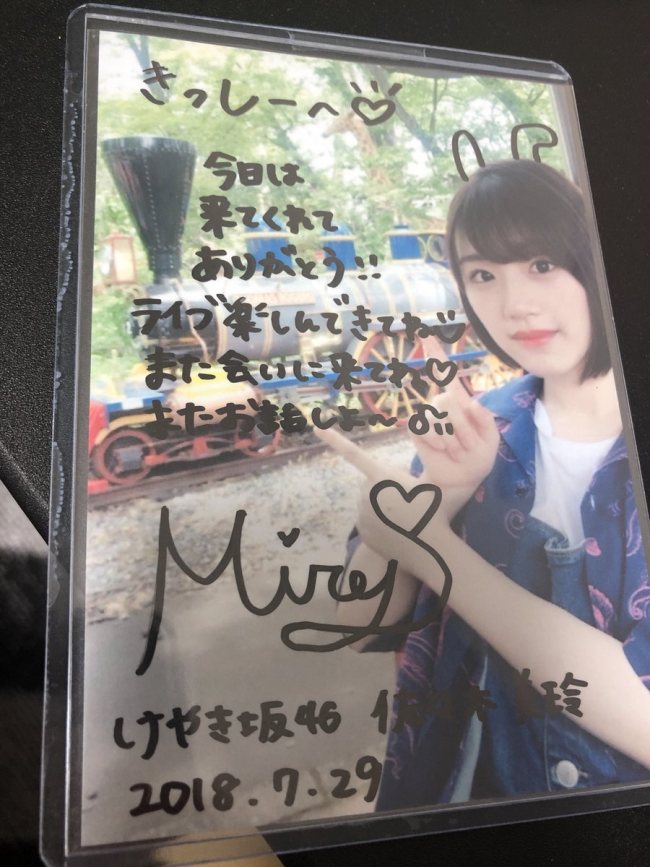 きっしーへ♡
今日は
来てくれて
ありがとう!!
ライブ楽しんできてね
また会いに来てね♡
またお話しよ〜♪
Mirei
けやき坂46 佐々木美玲
2018.7.29